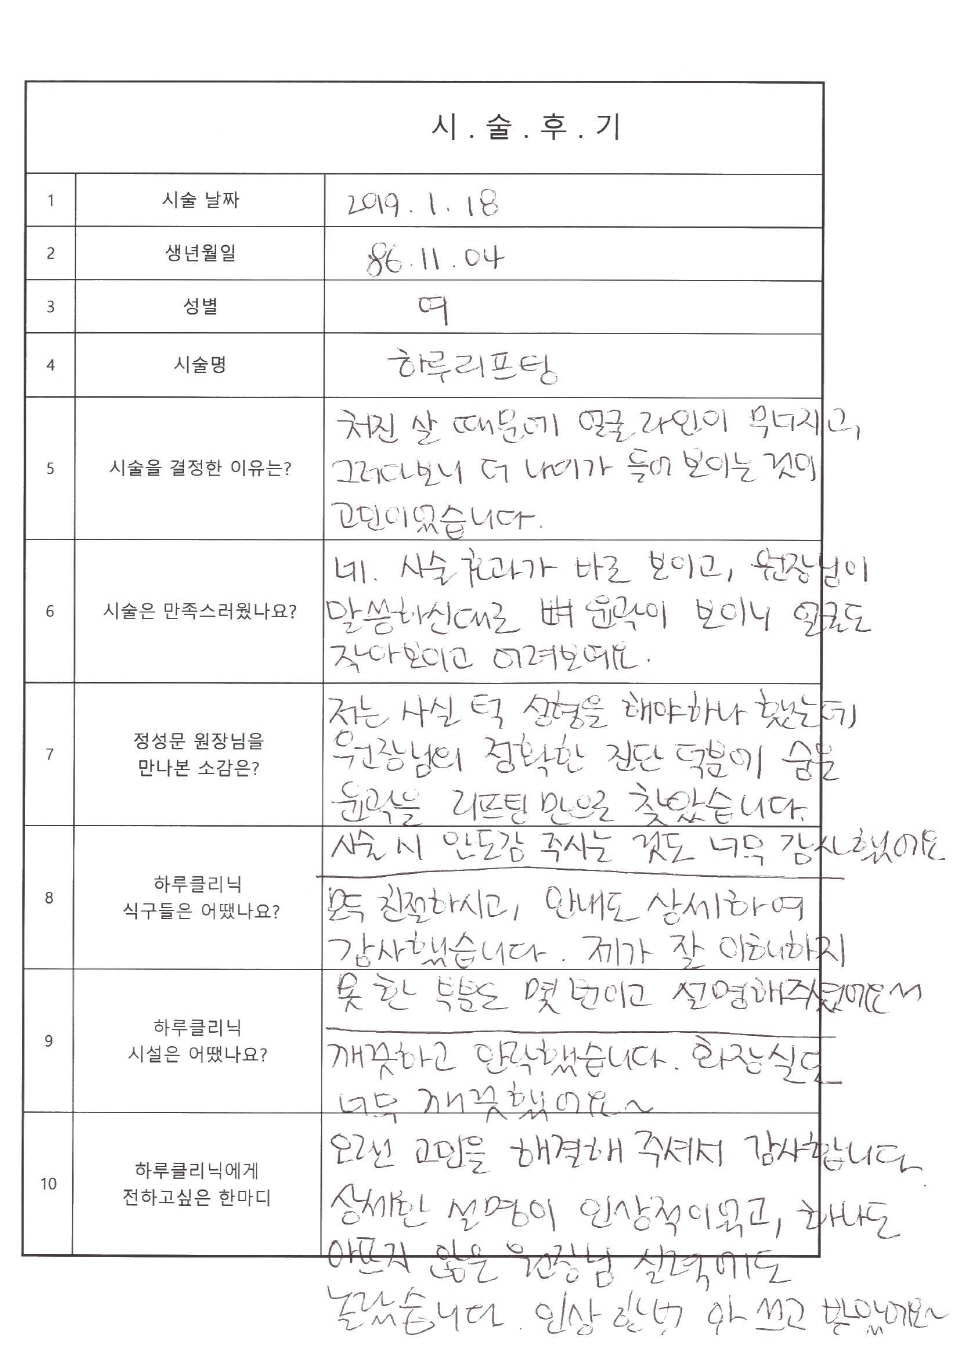 시.술.후.기
1 시술 날짜 2019.1.18
2 생년월일 86.11.04
3 성별 여
4 시술명 하루리프팅
처진 살 때문에 얼굴라인이 무너지고,
5 시술을 결정한 이유는? 그러다보니 더 나이가 들어 보이는 것이
고민이었습니다.
네. 시술효과가 바로 보이고, 원장님이
6 시술은 만족스러웠나요? 말씀하신대로 뼈 윤곽이 보이니 얼굴도
작아보이고 어려보여요.
저는 사실 턱 성형을 해야하나 했는데
7 정성문 원장님을 원장님의 정확한 진단 덕분에 숨은
만나본 소감은? 윤곽을 리프팅 만으로 찾았습니다.
시술 시 안도감 주시는 것도 너무 감사했어요
8 하루클리닉 모두 친절하시고, 안내도 상세하여
식구들은 어땠나요? 감사했습니다. 제가 잘 이해하지
못 한 부분도 몇 번이고 설명해주셨어요
9 하루클리닉
시설은 어땠나요? 깨끗하고 안락했습니다. 화장실도
너무 깨끗했어요~
10 하루클리닉에게 오랜 고민을 해결해 주셔서 감사합니다.
전하고싶은 한마디 상세한 설명이 인상적이었고, 하나도
아프지 않은 원장님 실력에도
놀랐습니다. 인상 한번 안 쓰고 받았어요~